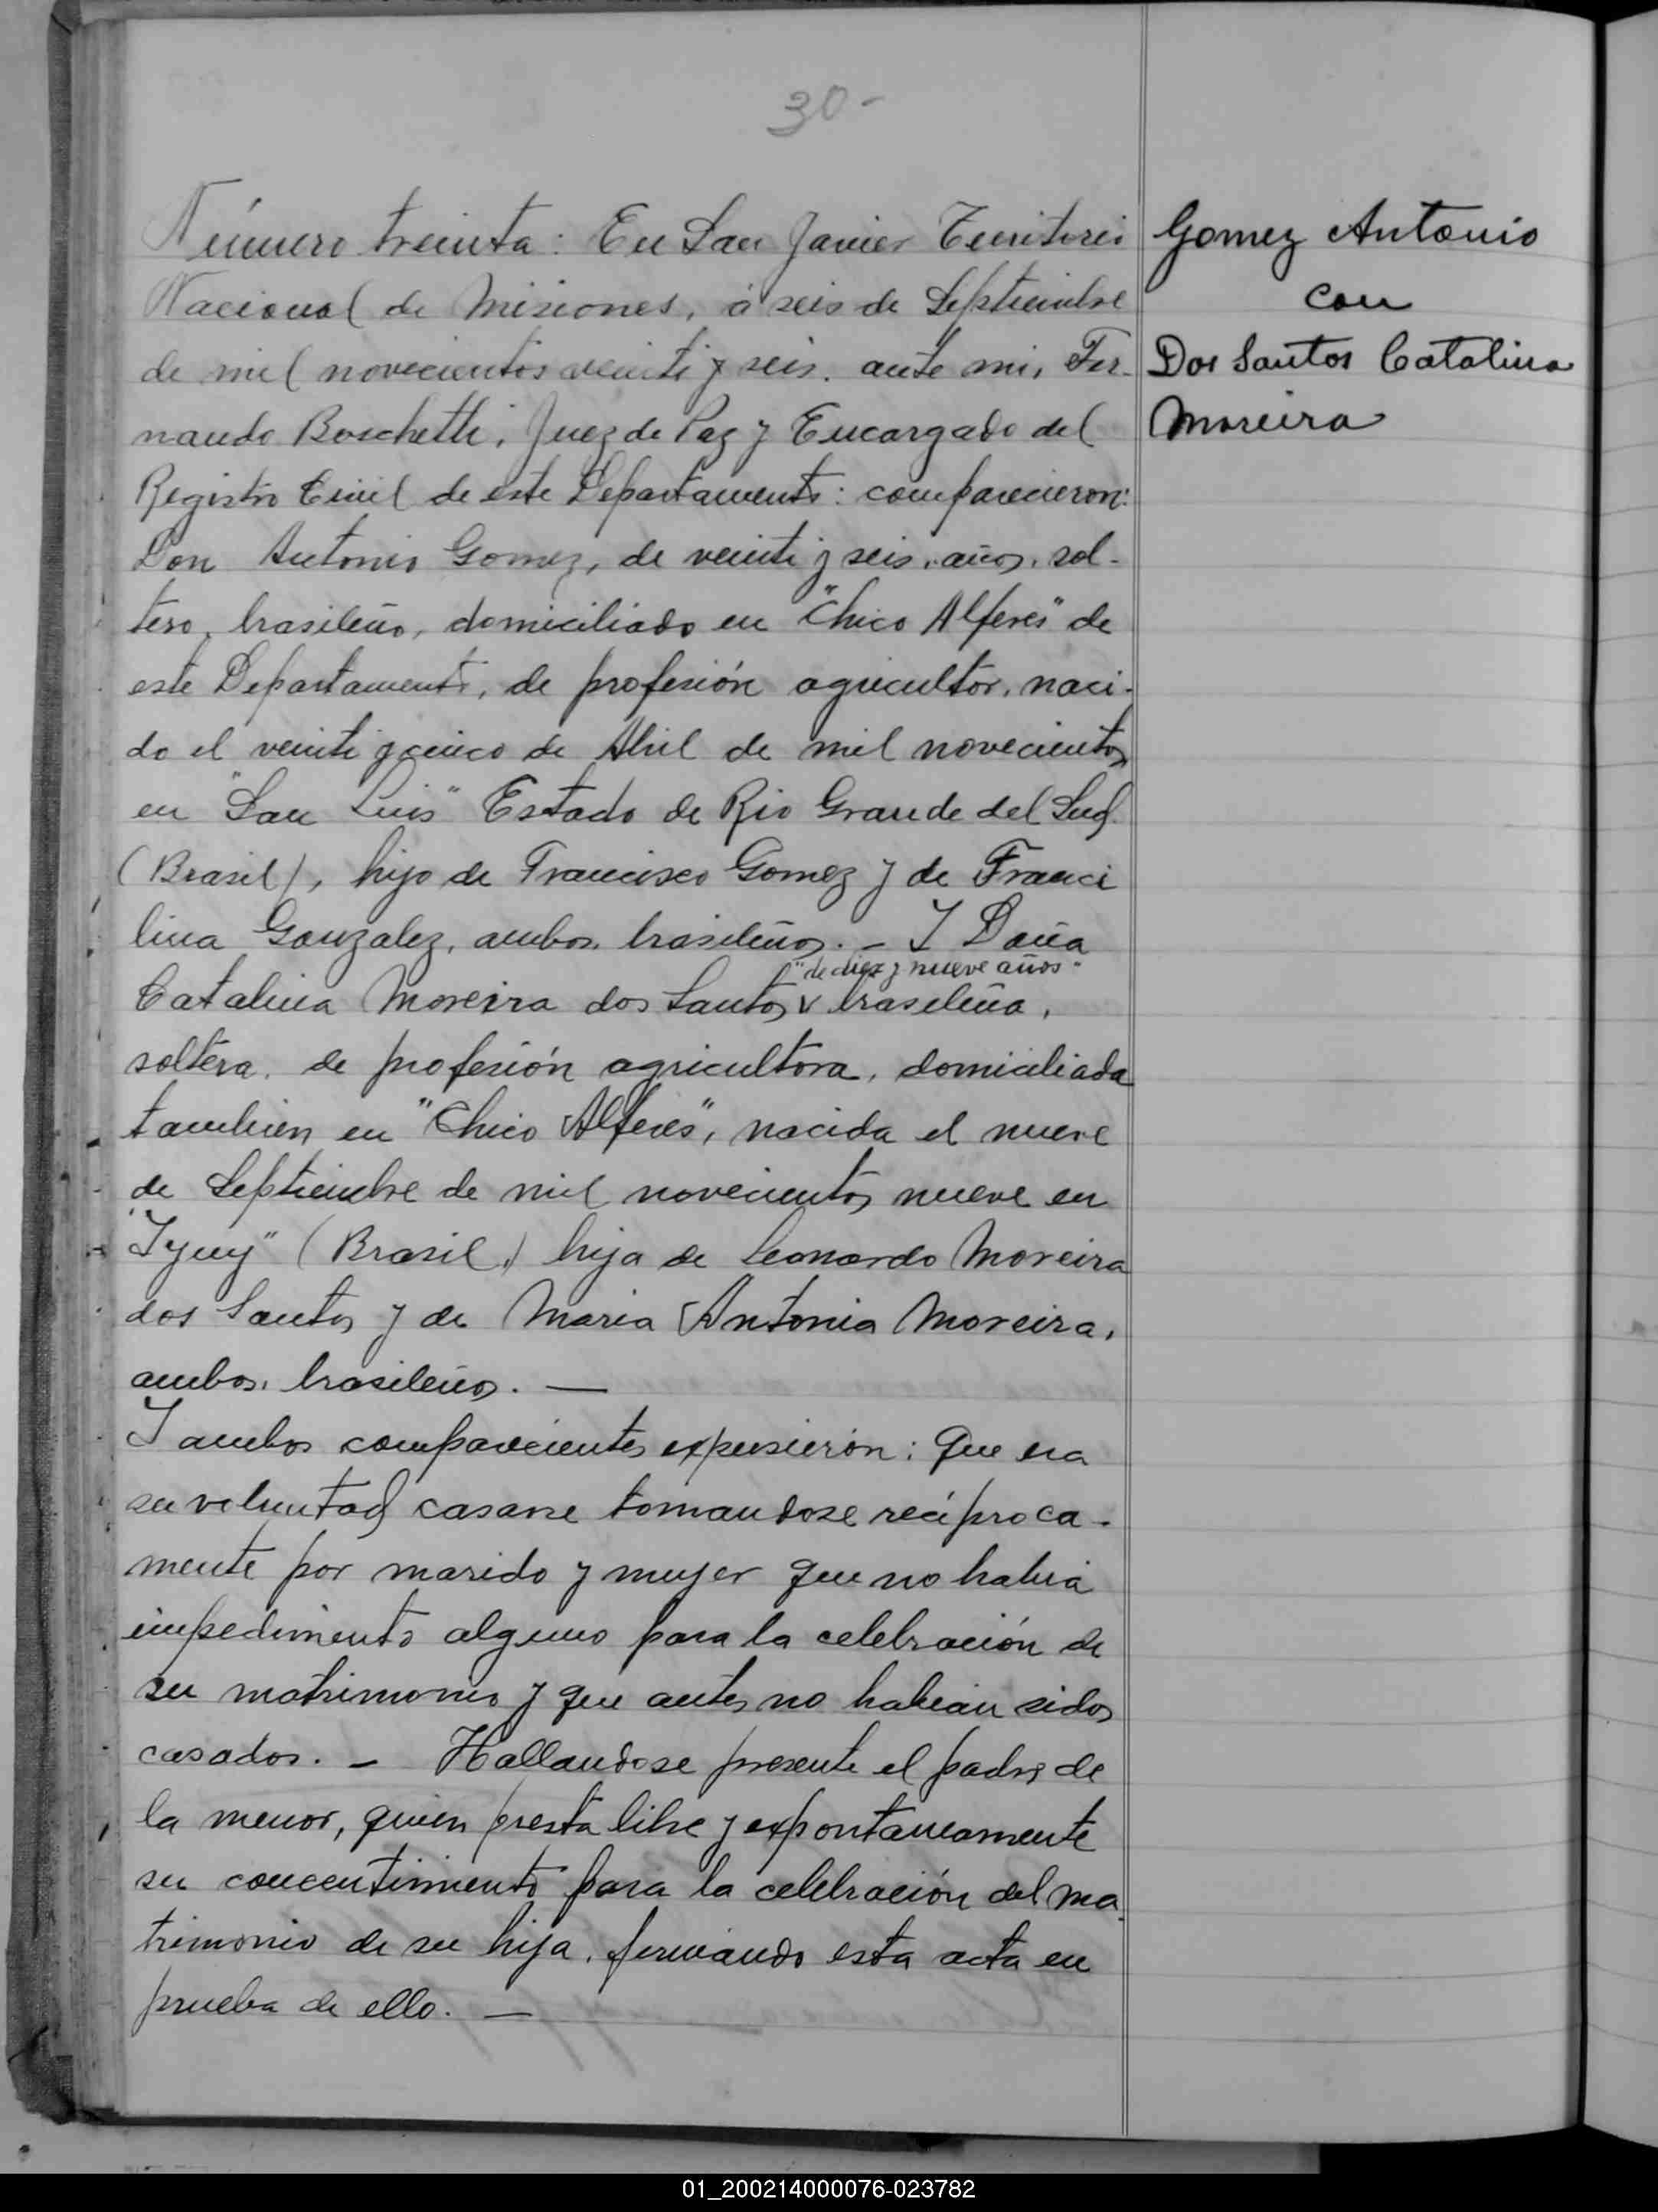 30-
Número treinta: En San Javier Territorio
Nacional de Misiones, á seis de Septiembre
de mil novecientos veinte y seis. ante mi, Fer-
nando Boschetti, Juez de Paz y Encargado del
Registro Civil de este Departamento: comparecieron:
Don Antonio Gomez, de veinte y seis años, sol-
tero, brasileño, domiciliado en "Chico Alferes" de
este Departamento, de profesión agricultor, naci-
do el veinte y cinco de Abril de mil novecientos
en "San Luis" Estado de Rio Grande del Sud
(Brasil), hijo de Francisco Gomez y de Franci
lina Gonzalez, ambos brasileños. - Y Doña
"de diez y nueve años"
Catalina Moreira dos Santos v brasileña,
soltera, de profesión agricultora, domiciliada
tambien en "Chico Alferes", nacida el nueve
de Septiembre de mil novecientos nueve en
"Yjuy" (Brasil,) hija de Leonardo Moreira
dos Santos y de Maria Antonia Moreira,
ambos brasileños. —
Y ambos comparecientes expusieron: Que era
su voluntad casarse tomandose recíproca-
mente por marido y mujer que no habia
impedimento alguno para la celebración de
su matrimonio y que antes no habian sidos
casados. - Hallandose presente el padre de
la menor, quien presta libre y expontaneamente
su concentimiento para la celebración del ma-
trimonio de su hija, firmando esta acta en
prueba de ello. —
Gomez Antonio
con
Dos Santos Catalina
Moreira
01_200214000076-023782